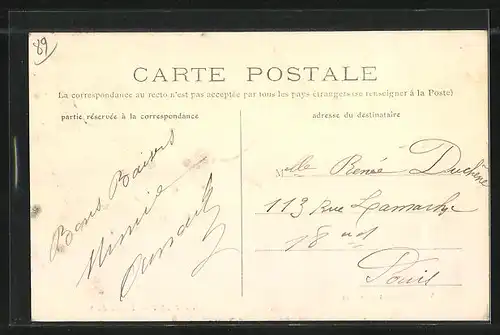 89
CARTE POSTALE
La correspondance au recto n'est pas acceptée par tous les pays étrangers (se renseigner à la Poste)
partie réservée à la correspondance
adresse du destinataire
Bons Baisers
Mimie
Melle Renée Duchêne
113 Rue
18
Paris